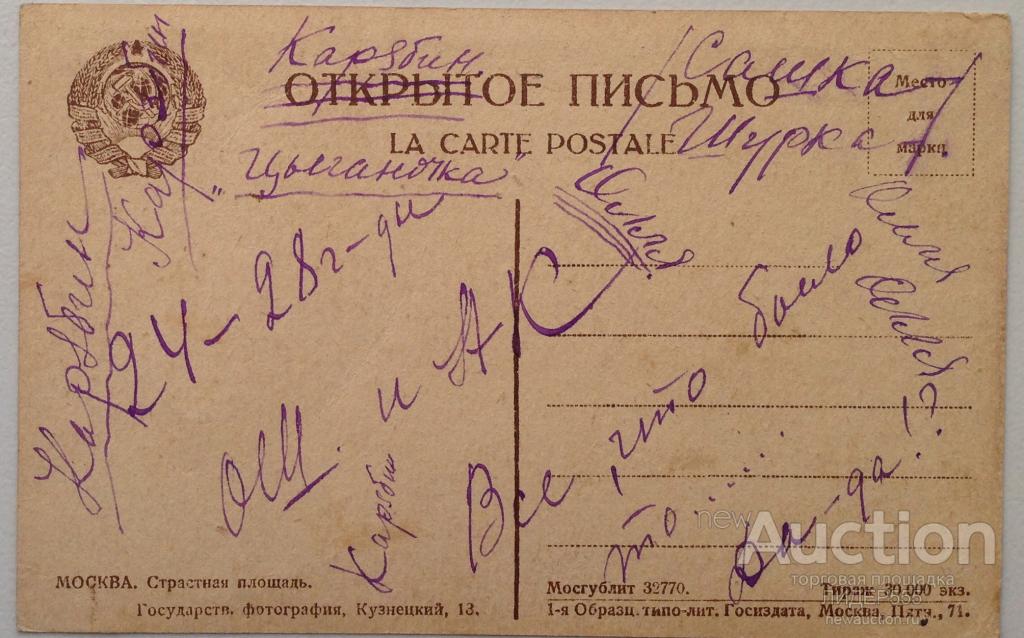 Карябин
ОТКРЫТОЕ ПИСЬМО
LA CARTE POSTALE
Место
для
марки
Сашка
Шурка
"Цыганочка"
Карябин
Карябин
24-28 г-ди
ОШ. и АК
Карябин
Оля
Оля
Оля?
Все, что было
то.....
да-да!?
МОСКВА. Страстная площадь.
Государств. фотография, Кузнецкий, 13.
Мосгублит 32770. Тираж 30.000 экз.
1-я Образц. типо-лит. Госиздата, Москва, Пятн., 71.
newAuction
торговая площадка
ЛИДЕР555
newauction.ru